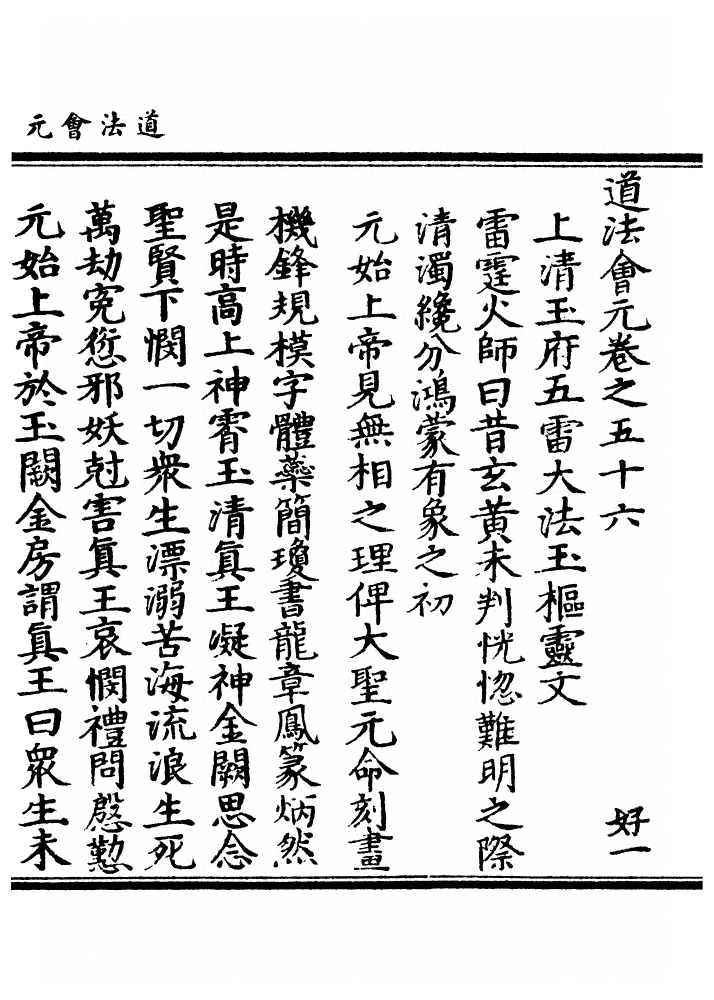 道法會元
道法會元卷之五十六 好一
上清玉府五雷大法玉樞靈文
雷霆火師曰昔玄黃未判恍惚難明之際
清濁纔分鴻蒙有象之初
元始上帝見無相之理俾大聖元命刻畫
機鋒規模字體蘂簡瓊書龍章鳳篆炳然
是時高上神霄玉清眞王凝神金闕思念
聖賢下憫一切衆生漂溺苦海流浪生死
萬劫寃愆邪妖尅害眞王哀憫禮問慇懃
元始上帝於玉闕金房謂眞王曰衆生未